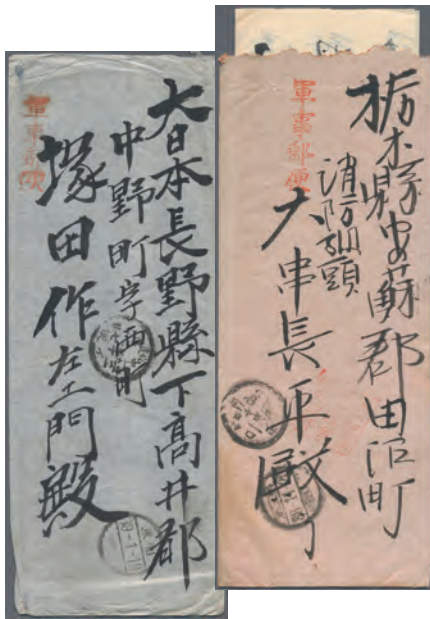 大日本長野縣下高井郡
中野町字西町
塚田作左エ門殿
軍事郵便
栃木縣安蘇郡田沼町
消防組頭
大串長平殿
軍事郵便